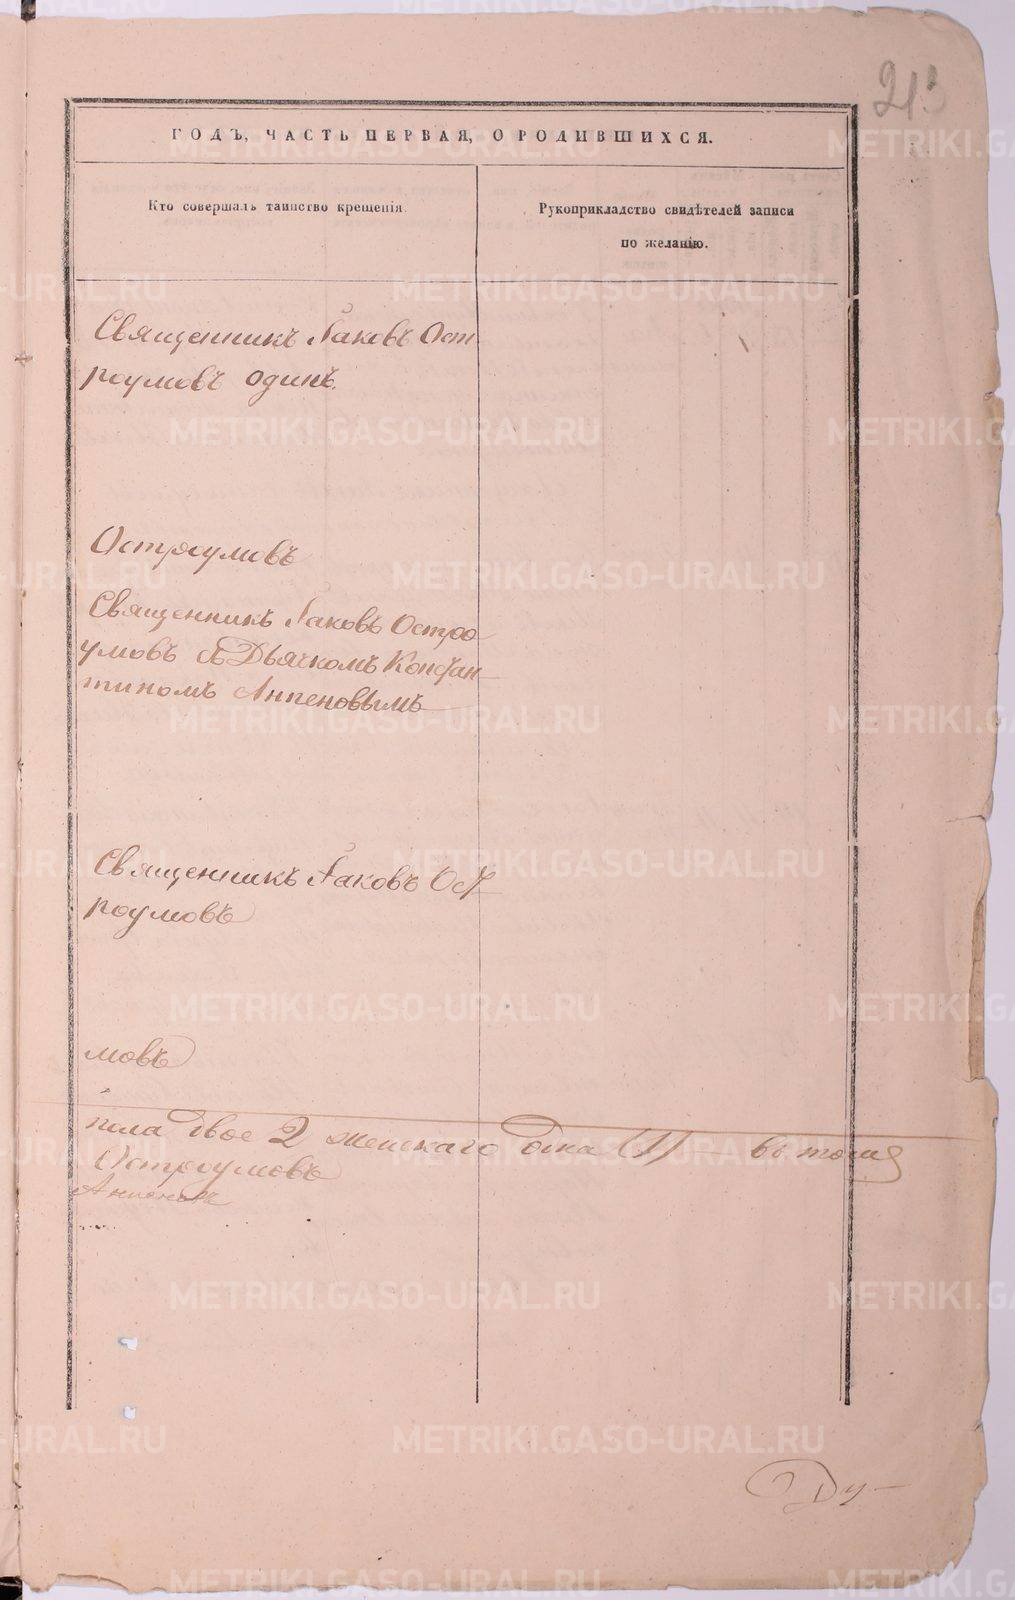 213
ГОДЪ, ЧАСТЬ ПЕРВАЯ, О РОДИВШИХСЯ.
Кто совершалъ таинство крещенія.
Рукоприкладство свидѣтелей записи
по желанію.
Священникъ Іаковъ Ост
роумовъ одинъ.
Остроумовъ
Священникъ Іаковъ Остро
умовъ съ Дьячкомъ Констан
тиномъ Анпеновымъ
Священникъ Іаковъ Ост
роумовъ
мовъ
пола двое 2 женскаго одна (1) — въ томъ
Остроумовъ
METRIKI.GASO-URAL.RU